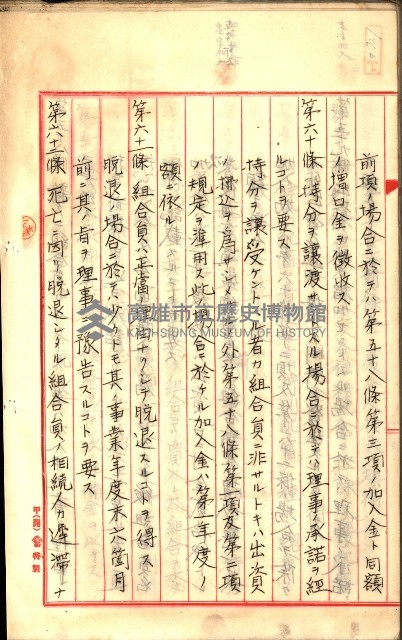 前項ノ場合ニ於テハ第五十八條第三項ノ加入金ト同額
ノ増口金ヲ徴收ス
第六十條 持分ヲ讓渡サントスル場合ニ於テハ理事ノ承諾ヲ經
ルコトヲ要ス
持分ヲ讓受ケントスル者カ組合員ニ非サルトキハ出資
ノ拂込ヲ爲サシメサル外第五十八條第一項及第二項
ノ規定ヲ準用ス此ノ場合ニ於ケル加入金ハ第一年度ノ
額ニ依ル
第六十一條 組合員ハ正當ノ理由ナクシテ脱退スルコトヲ得ス
脱退ノ場合ニ於テハ少クトモ其ノ事業年度末六箇月
前ニ其ノ旨ヲ理事ニ豫告スルコトヲ要ス
第六十二條 死亡ニ因リ脱退シタル組合員ノ相続人カ遅滞ナ
高雄市立歷史博物館
KAOHSIUNG MUSEUM OF HISTORY